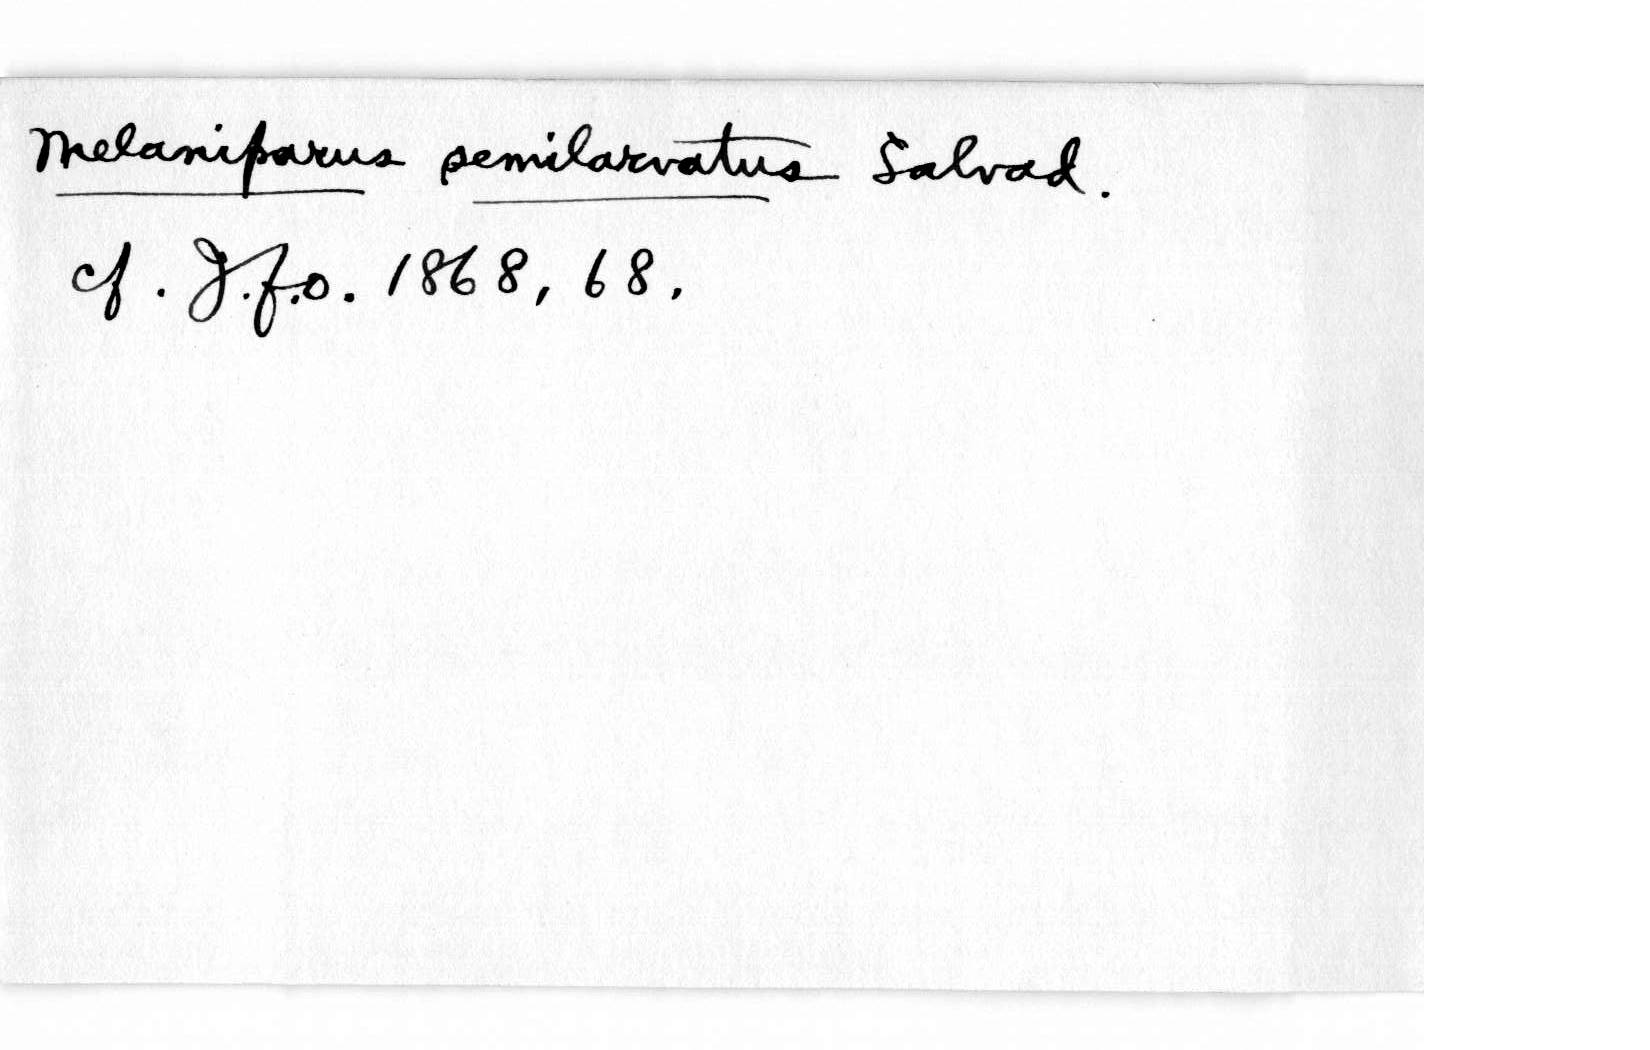 Melaniparus semilarvatus Salvad.
cf. J.f.o. 1868, 68.